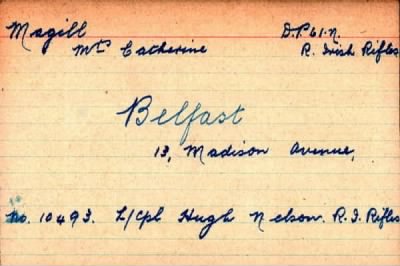 Magill D.P. 61.N.
Mrs Catherine R. Irish Rifles
Belfast
13, Madison Avenue,
No. 10493. L/Cpl Hugh Nelson. R. I. Rifles